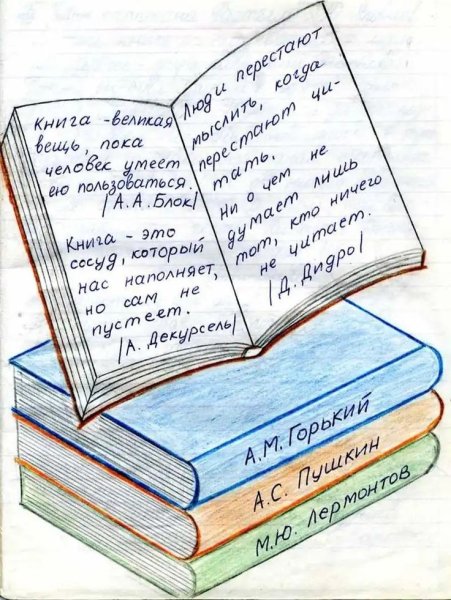 Книга -великая
вещь, пока
человек умеет
ею пользоваться.
|А.А.Блок|
Книга - это
сосуд, который
нас наполняет,
но сам не
пустеет.
|А. Декурсель|
Люди перестают
мыслить, когда
перестают чи-
тать.
Ни о чем не
думает лишь
тот, кто ничего
не читает.
|Д. Дидро|
А.М. Горький
А.С. Пушкин
М.Ю. Лермонтов